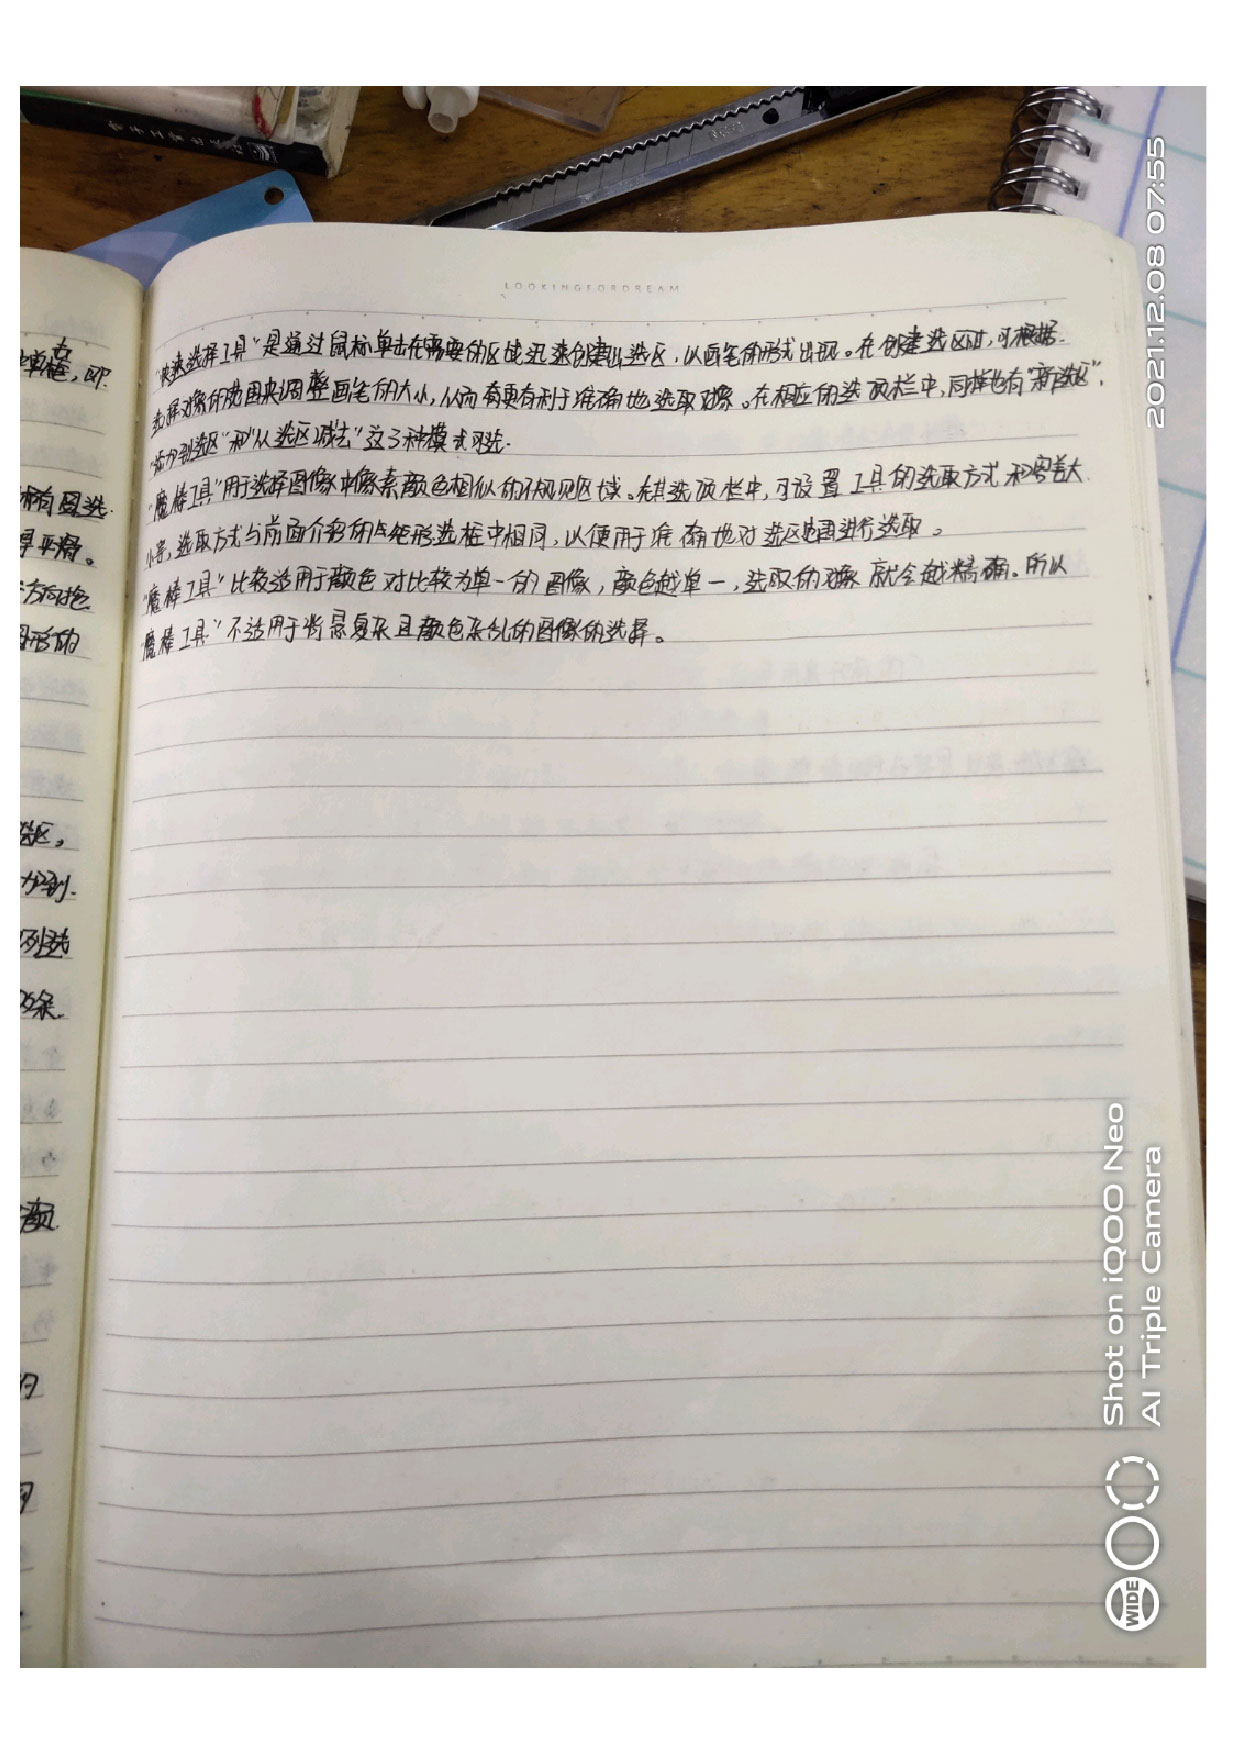 电子工业出版社
LOOKINGFORDREAM
"快速选择工具"是通过鼠标单击在需要的区域迅速创建出选区，以画笔的形式出现。在创建选区时，可根据
选择对象的范围来调整画笔的大小，从而有更有利于准确地选取对象。在相应的选项栏中，同样也有"新选区"，
"添加到选区"和"从选区减去"这3种模式可选.
"魔棒工具"用于选择图像中像素颜色相似的不规则区域。在其选项栏中，可设置工具的选取方式和容差大
小等，选取方式与前面介绍的矩形选框中相同，以便用于准确地对选区范围进行选取。
"魔棒工具"比较适用于颜色对比较为单一的图像，颜色越单一，选取的对象就会越精确。所以
"魔棒工具"不适用于背景复杂且颜色杂乱的图像的选择。
单框，即
稀有图选
得平滑。
方向拖
图形的
选区。
加到.
列选
条.
颜
的
2021.12.08 07:55
Shot on iQOO Neo
AI Triple Camera
WIDE